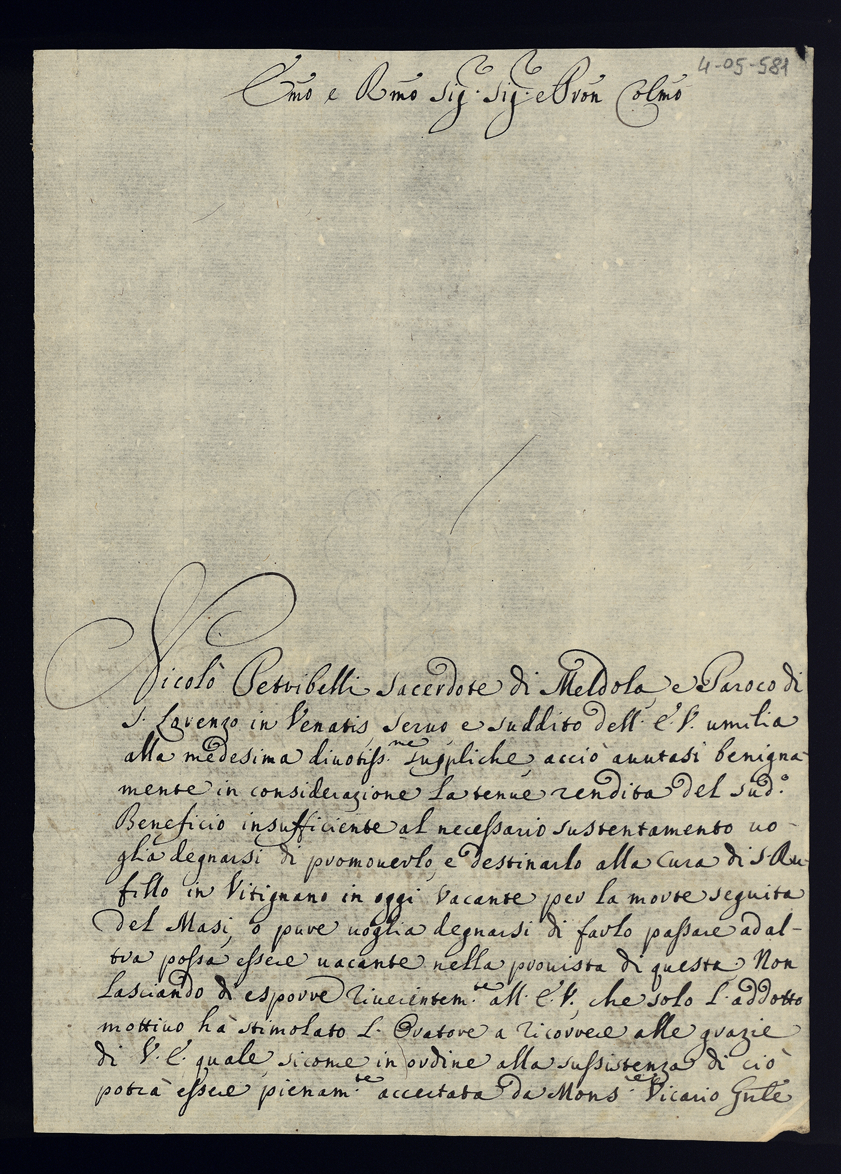 4-05-581
Emo e Rmo Sig: Sig: e Pron Colmo
Nicolò Petribelli sacerdote di Meldola, e Paroco di
S. Lorenzo in Venatis, servo e suddito dell' E. V. umilia
alla medesima divotiss.me suppliche, acciò avutasi benigna-
mente in considerazione la tenue rendita del sud.o
Beneficio insufficiente al necessario sustentamento vo-
glia degnarsi di promoverlo, e destinarlo alla cura di S. Ru-
fillo in Vitignano in oggi vacante per la morte seguita
del Masi, o pure voglia degnarsi di farlo passare ad al-
tra possa essere vacante nella provista di questa, Non
lasciando di esporre riverentem.te all' E. V., che solo l' addotto
mottivo hà stimolato l' Oratore a ricorrere alle grazie
di V. E. quale, sicome in ordine alla sussistenza di ciò
potrà essere pienam.te accertata da Mons.re Vicario Gnle